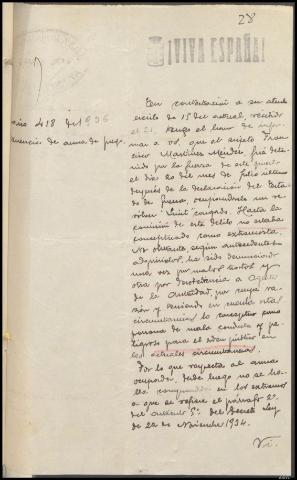 28
¡VIVA ESPAÑA!
En contestación a su atento
escrito de 15 del actual, recibido
el 21, tengo el honor de infor-
mar a Vd. que el sujeto Fran-
cisco Martínez Méndez, fué dete-
nido por la fuerza de este
el día 20 del mes de Julio último
después de la declaración del Esta-
do de Guerra, ocupándosele un re-
volver "Smit" cargado. Hasta la
comisión de este delito no estaba
conceptuado como extremista.
No obstante, según antecedentes
adquiridos, ha sido denunciado
una vez por malos tratos y
otra por desobediencia a Agente
de la Autoridad, por cuya ra-
zón y teniendo en cuenta otras
circunstancias lo conceptúo como
persona de mala conducta y pe-
ligrosa para el orden público en
las actuales circunstancias.
Por lo que respecta al arma
ocupada, desde luego no se ha-
lla comprendida en los extremos
a que se refiere el párrafo 2º
del artículo 5º del Decreto Ley
de 22 de Noviembre 1934.
418 de 1936
tenencia de arma de fuego